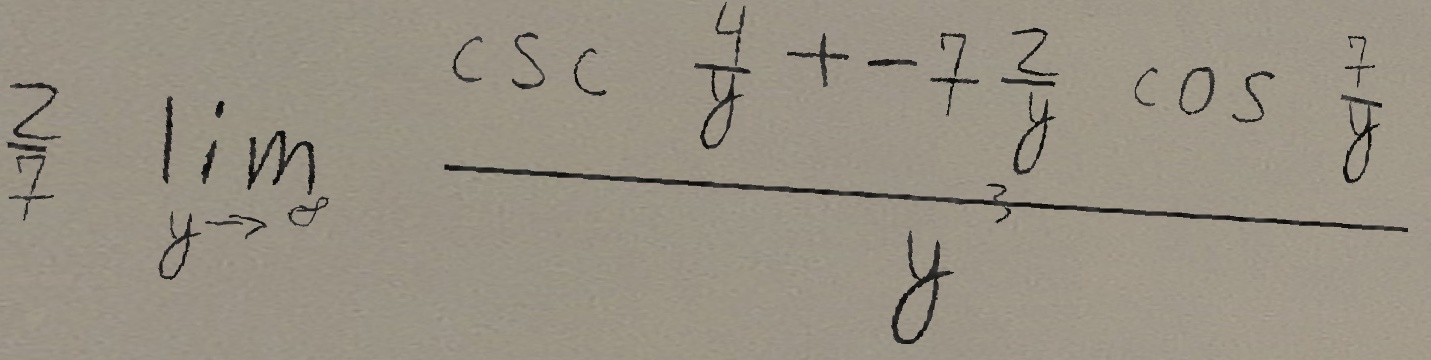 $\frac{2}{7} \lim_{y \to \infty} \frac{\csc \frac{4}{y} + -7 \frac{2}{y} \cos \frac{7}{y}}{y^3}$